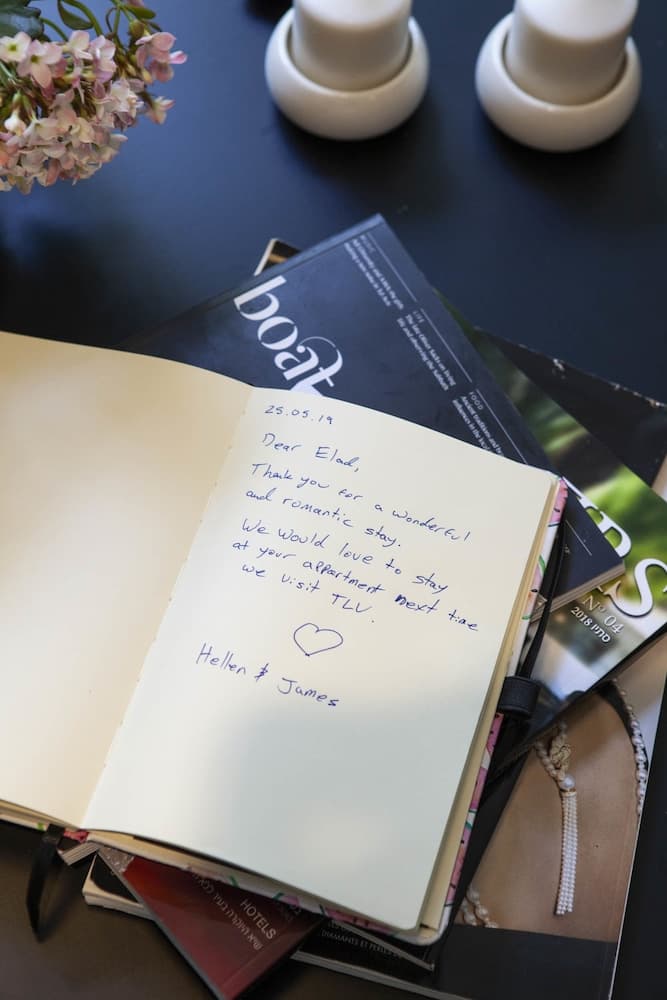 boat
LIFE
FOOD
25.05.19
Dear Elad,
Thank you for a wonderful
and romantic stay.
We would love to stay
at your appartment next time
we visit TLV.
Hellen & James
Nº 04
סתיו 2018
HOTELS
DIAMANTS ET PERLES